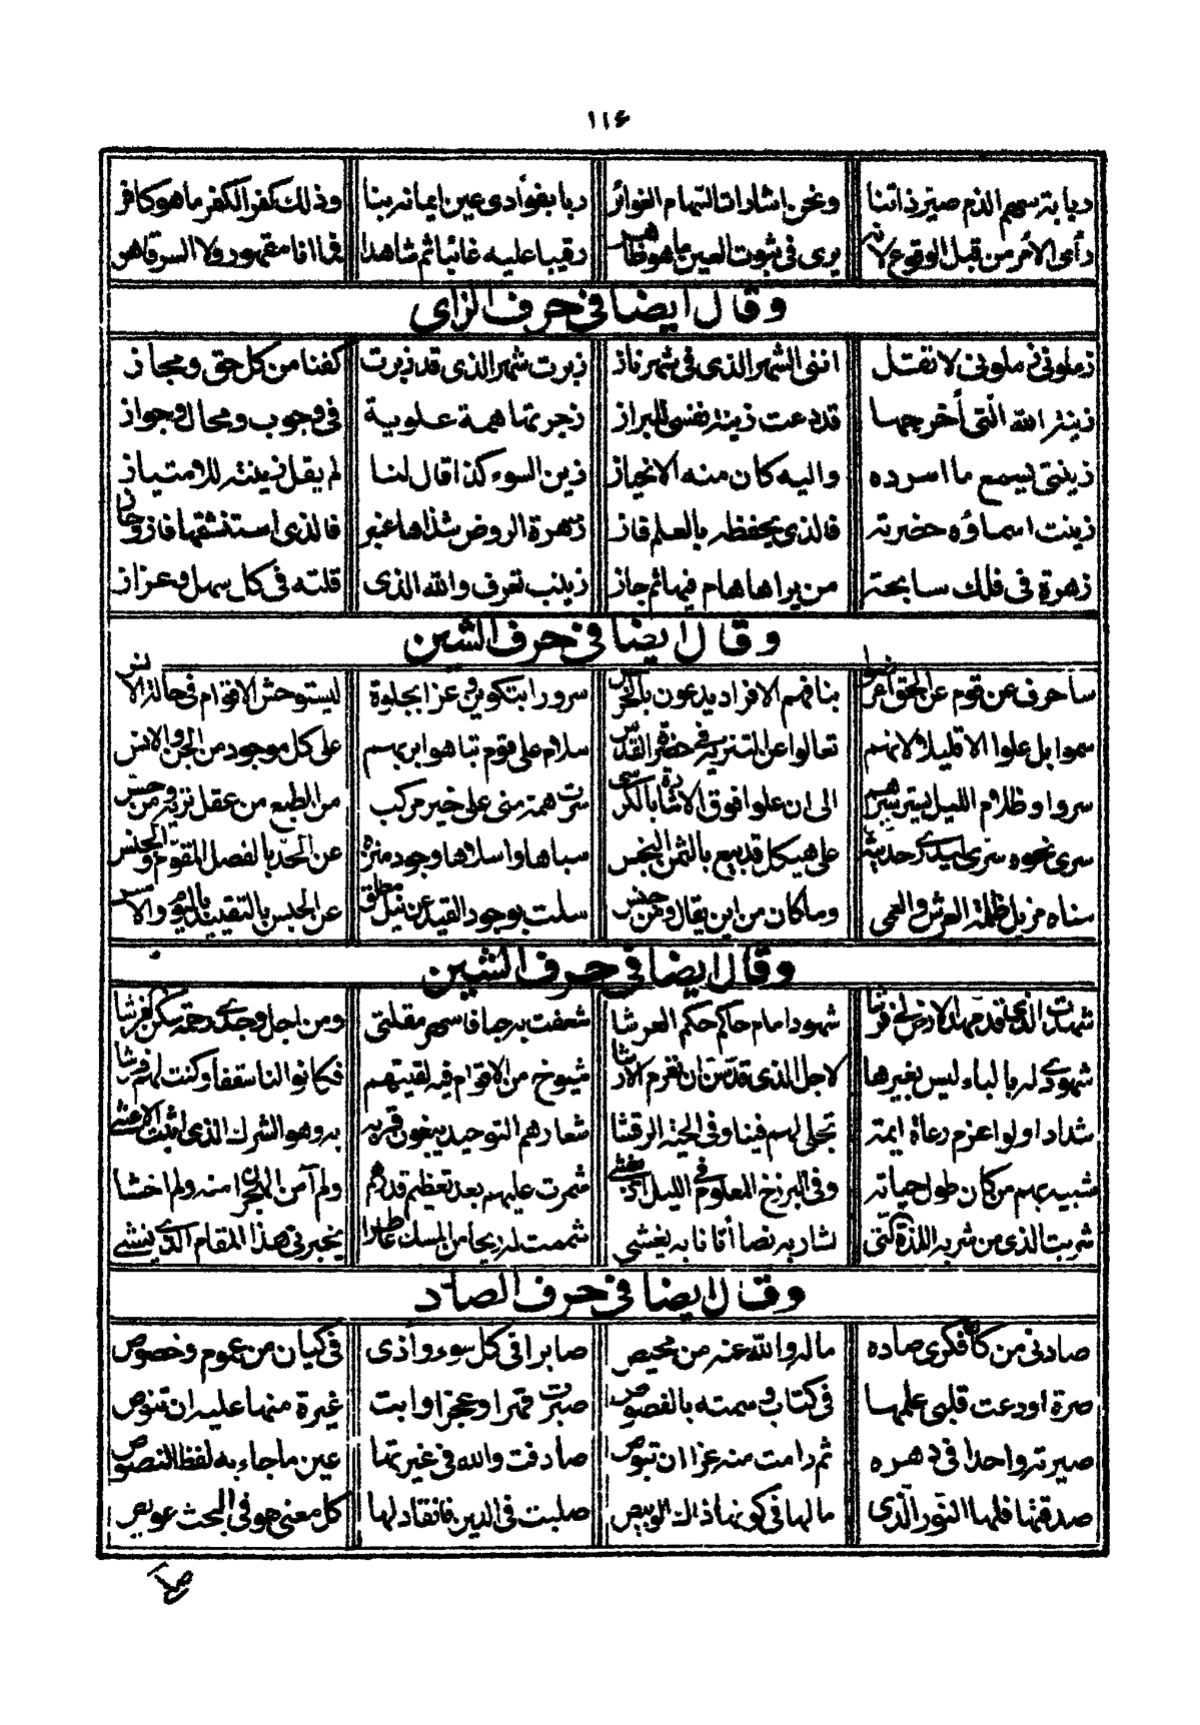 ١١٦
رماية سهم الذم صير ذاتنا ونحن اشارات السهام النوافر ربا بفوأدى عين ايمانه بنا وذلك كفر الكفر ما هو كافر
رأى الأمر من قبل الوقوع لأنه يرى فى ثبوت العين ما هو ظاهر رقيبا عليه غائبا ثم شاهدا فما انا مقهور ولا السر قاهر
وقال ايضا فى حرف الزاى
زملونى زملونى لا تقتل اننى الشهر الذى فى شهرناز زبرت شهر الذى قد زبرت كفنا من كل حق ومجاز
زينة الله التى أخرجها قد دعت زينة نفسى للبراز زجرتها همة علوية فى وجوب ومحال وجواز
زينتى يسمع ما اسرده واليه كان منه الانحياز زين السوء كذا قال لنا لم يقل زينته للامتياز
زينت اسماؤه حضرته فالذى يحفظه بالعلم فاز زهرة الروض شذاها عنبر فالذى استنشقها فاز وحاز
زهرة فى فلك سابحة من يراها هام فيها ثم جاز زينب تعرف والله الذى قلته فى كل سهل وعزاز
وقال ايضا فى حرف الشين
سأحرف عن قوم عن الحق بنافهم الافراد يدعون سرور ابتكوين وعزا بجلوة ليستوحش الاقوام فى حالة الانس
سموا بل علوا الا قليلا لانهم تعالوا عن التنزيه فى حضرة القدس سلام على قوم تباهوا بربهم على كل موجود من الجن والانس
سروا وظلام الليل يستر سرهم الى ان علوا فوق الاشارة بالكرسى سرت همة منى على خير مركب من الطبع من عقل نزيه ومن حس
سرى نحوه سرى على هيكل قد بيع بالثمن البخس سباها واسلاها وجود منزه عن الحد بالفصل المقوم والجنس
سناه مزيل ظلمة العرش والعمى وما كان من اين يقال ومن جنس سلت بوجود القيد عن نيل مطلق عن الحبس بالتقييد باليوم والامس
وقال ايضا فى حرف الشين
شهدت الذى قد مهد الارض لى فرشا شهود امام حاكم حكم العرشا شغفت به حبا فاسهر مقلتى ومن اجل وجدى رحمة سكن العرشا
شهودى له بالباء ليس بغيرها لاجل الذى قد سن ان نغرم الارشا شيوخ من الاقوام فيه لقيتهم فكانوا لنا سقفا وكنت لهم فرشا
شداد اولوا عزم رعاة ايمة تجلى لهم فينا وفى الحية الرقشا شعارهم التوحيد يبغون قربه به وهو الشرك الذى اثبت الاعشى
شبيه بهم من كان طول حياته وفى البرزخ المعلوم فى الليل اذ يغشى شمرت عليهم بعد تعظيم قدرهم ولم آمن المكر منه ولم اخشا
شربت الذى من شربه اللذة التى تشار به نصا أتانا به يغشى شممت له ريحا من المسك عاطرا يخبرنى هذا المقام الذى ينشى
وقال ايضا فى حرف الصاد
صادنى من كان فكرى صاده ماله والله عنه من محيص صابرا فى كل سوء وأذى فى كيان من عموم وخصوص
صرة اودعت قلبى علمها فى كتاب وسمته بالفصوص صبرت قهرا وعجزا وابت غيرة منها عليه ان تنوص
صيرته واحدا فى دهره ثم رامت منه عزا ان تبوص صادفت والله فى غيرتها عين ما جاء به لفظ النصوص
صدقتها فلها النور الذى مالها فى كونها ذاك الوبيص صلبت فى الدين فانقاد لها كل معنى هو فى البحث عويص